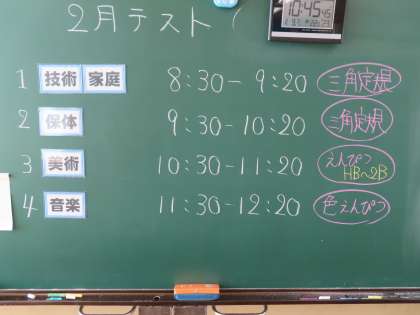 2月テスト (
10:45 45
1 技術 家庭 8:30- 9:20 三角定規
2 保体 9:30-10:20 三角定規
3 美術 10:30-11:20 えんぴつ HB~2B
4 音楽 11:30-12:20 色えんぴつ